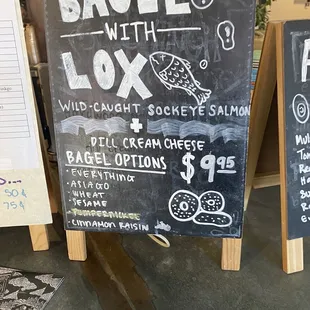 BAGEL
WITH
LOX
WILD-CAUGHT SOCKEYE SALMON
+
DILL CREAM CHEESE
BAGEL OPTIONS
$9.95
• EVERYTHING
• ASIAGO
• WHEAT
• SESAME
• PUMPERNICKEL
• CINNAMON RAISIN
50¢
75¢